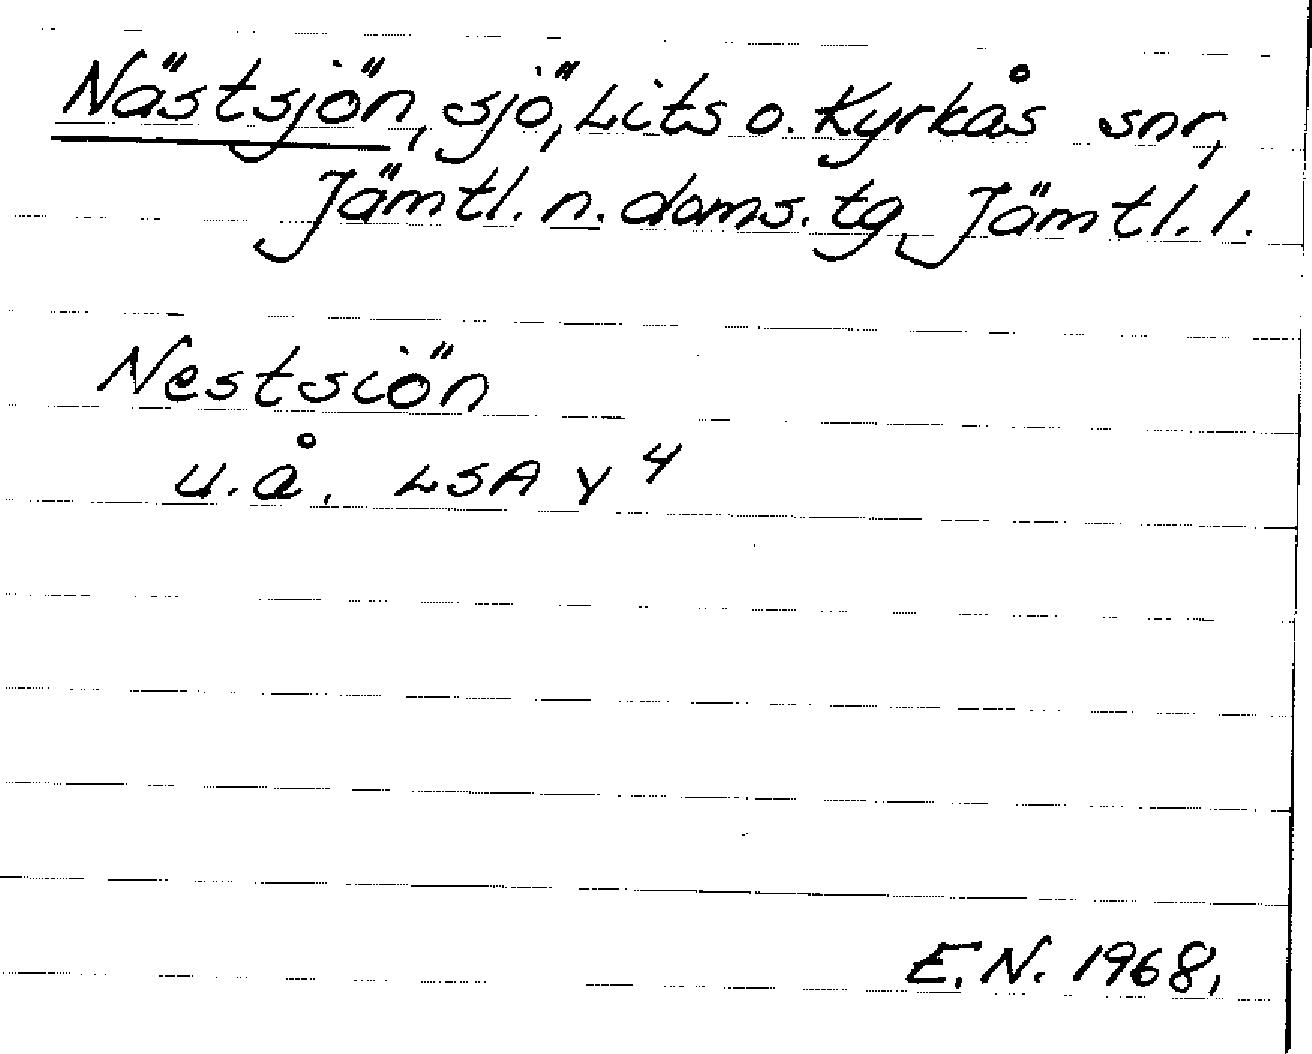 Nästsjön, sjö, Lits o. Kyrkås snr,
Jämtl. n. doms. tg, Jämtl. l.
Nestsiön
u.å. LSA Y 4
E.N. 1968.